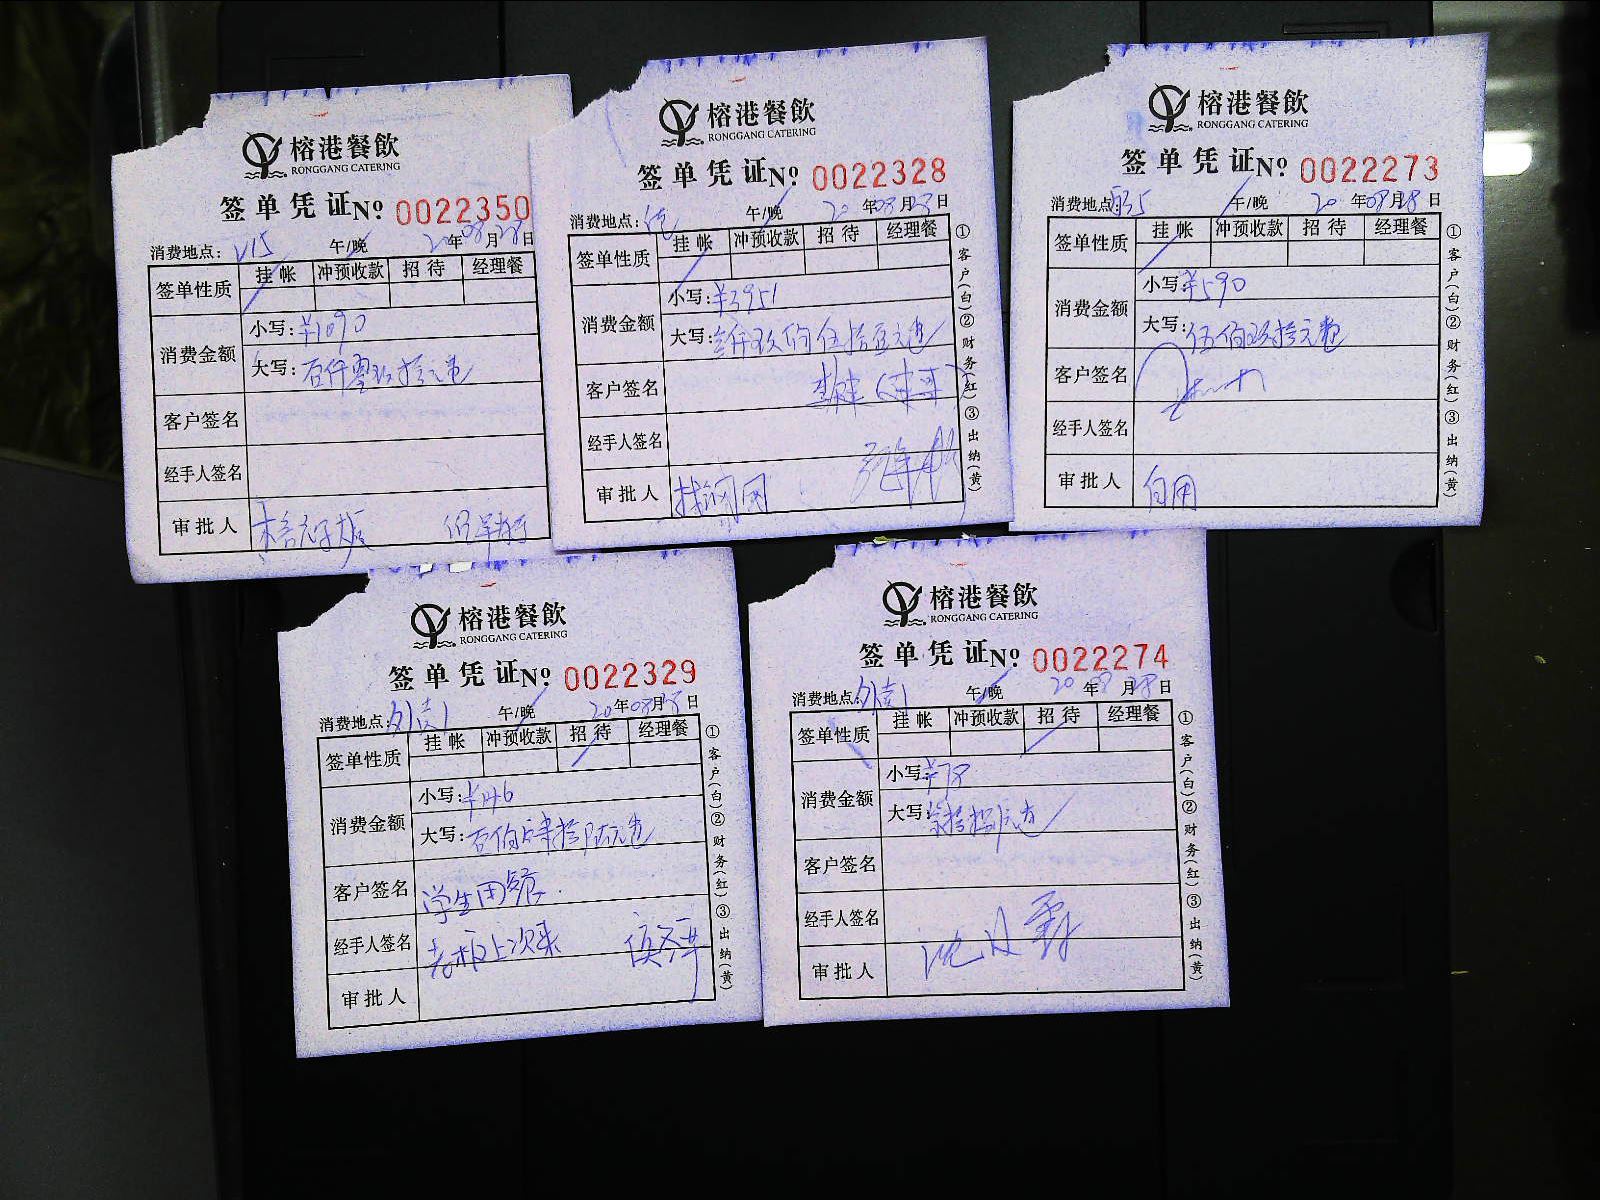 榕港餐飲
RONGGANG CATERING
签单凭证No 0022350
消费地点: V15 午/晚 20年08月28日
签单性质 挂帐 冲预收款 招待 经理餐
消费金额 小写: ¥1090
大写: 壹仟零玖拾元整
客户签名
经手人签名
审批人
榕港餐飲
RONGGANG CATERING
签单凭证No 0022328
消费地点: 午/晚 20年08月28日
签单性质 挂帐 冲预收款 招待 经理餐
消费金额 小写: ¥3951
大写: 叁仟玖佰伍拾壹元整
客户签名
经手人签名
审批人
①客户(白)②财务(红)③出纳(黄)
榕港餐飲
RONGGANG CATERING
签单凭证No 0022273
消费地点: 午/晚 20年08月28日
签单性质 挂帐 冲预收款 招待 经理餐
消费金额 小写: ¥590
大写: 伍佰玖拾元整
客户签名
经手人签名
审批人 自用
①客户(白)②财务(红)③出纳(黄)
榕港餐飲
RONGGANG CATERING
签单凭证No 0022329
消费地点: 外卖1 午/晚 20年08月28日
签单性质 挂帐 冲预收款 招待 经理餐
消费金额 小写: ¥146
大写: 壹佰肆拾陆元整
客户签名 学生用餐
经手人签名 老板上次来
审批人
①客户(白)②财务(红)③出纳(黄)
榕港餐飲
RONGGANG CATERING
签单凭证No 0022274
消费地点: 外卖1 午/晚 20年08月28日
签单性质 挂帐 冲预收款 招待 经理餐
消费金额 小写: ¥78
大写: 柒拾捌元整
客户签名
经手人签名
审批人
①客户(白)②财务(红)③出纳(黄)